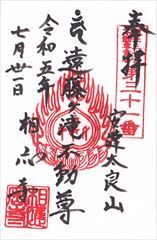 奉拝
第三十一番
安達太良山
遠藤ヶ滝不動尊
令和五年
七月卅一日
相応寺